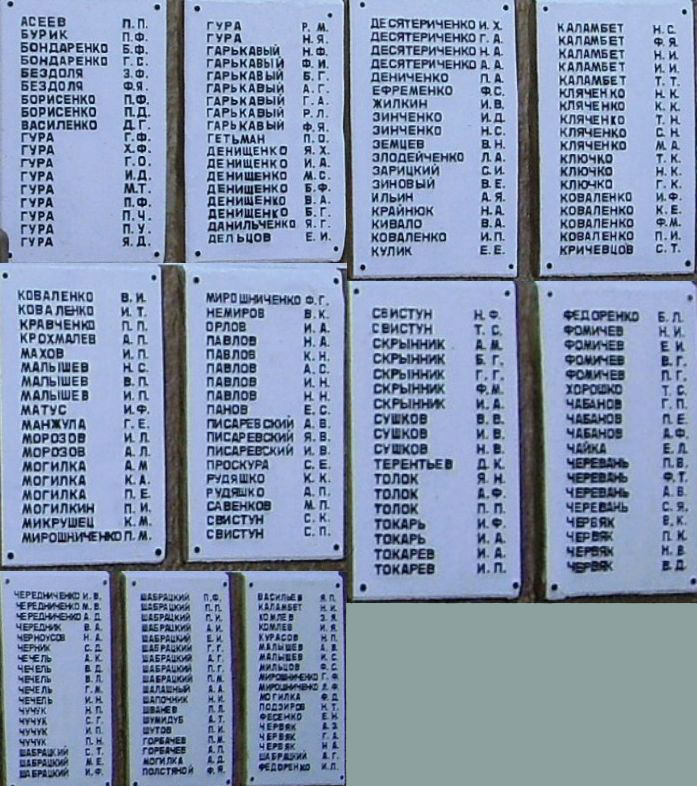 АСЕЕВ П.П.
БУРИК П.Ф.
БОНДАРЕНКО Б.Ф.
БОНДАРЕНКО Г.С.
БЕЗДОЛЯ З.Ф.
БЕЗДОЛЯ Ф.Я.
БОРИСЕНКО П.Ф.
БОРИСЕНКО П.Д.
ВАСИЛЕНКО Д.Г.
ГУРА Г.Ф.
ГУРА Х.Ф.
ГУРА Г.О.
ГУРА И.Д.
ГУРА М.Т.
ГУРА П.Ф.
ГУРА П.Ч.
ГУРА П.У.
ГУРА Я.Д.
ГУРА Р.М.
ГУРА Н.Я.
ГАРЬКАВЫЙ Н.Ф.
ГАРЬКАВЫЙ Ф.И.
ГАРЬКАВЫЙ Б.Г.
ГАРЬКАВЫЙ А.Г.
ГАРЬКАВЫЙ Г.А.
ГАРЬКАВЫЙ Р.Л.
ГАРЬКАВЫЙ Ф.Я.
ГЕТЬМАН П.О.
ДЕНИЩЕНКО Я.Х.
ДЕНИЩЕНКО И.А.
ДЕНИЩЕНКО М.С.
ДЕНИЩЕНКО Б.Ф.
ДЕНИЩЕНКО В.А.
ДЕНИЩЕНКО Б.Г.
ДАНИЛЬЧЕНКО Я.Г.
ДЕЛЬЦОВ Е.И.
ДЕСЯТЕРИЧЕНКО И.Х.
ДЕСЯТЕРИЧЕНКО Г.А.
ДЕСЯТЕРИЧЕНКО Н.А.
ДЕСЯТЕРИЧЕНКО А.А.
ДЕНИЧЕНКО П.А.
ЕФРЕМЕНКО Ф.С.
ЖИЛКИН И.В.
ЗИНЧЕНКО И.Д.
ЗИНЧЕНКО Н.С.
ЗЕМЦЕВ В.Н.
ЗЛОДЕЙЧЕНКО Л.А.
ЗАРИЦКИЙ С.И.
ЗИНОВЫЙ В.Е.
ИЛЬИН А.Я.
КРАЙНЮК Н.А.
КИВАЛО В.А.
КОВАЛЕНКО И.П.
КУЛИК Е.Е.
КАЛАМБЕТ Н.С.
КАЛАМБЕТ Ф.Я.
КАЛАМБЕТ Н.И.
КАЛАМБЕТ И.И.
КАЛАМБЕТ Т.Т.
КЛЯЧЕНКО Н.К.
КЛЯЧЕНКО К.К.
КЛЯЧЕНКО Т.Н.
КЛЯЧЕНКО С.Н.
КЛЯЧЕНКО М.А.
КЛЮЧКО Т.К.
КЛЮЧКО Н.К.
КЛЮЧКО Г.К.
КОВАЛЕНКО И.Ф.
КОВАЛЕНКО К.Е.
КОВАЛЕНКО Ф.М.
КОВАЛЕНКО П.И.
КРИЧЕВЦОВ С.Т.
КОВАЛЕНКО В.И.
КОВАЛЕНКО И.Т.
КРАВЧЕНКО П.П.
КРОХМАЛЕВ А.П.
МАХОВ И.П.
МАЛЫШЕВ Н.С.
МАЛЫШЕВ В.П.
МАЛЫШЕВ И.П.
МАТУС И.Ф.
МАНЖУЛА Г.Е.
МОРОЗОВ И.Л.
МОРОЗОВ А.Л.
МОГИЛКА А.М
МОГИЛКА К.А.
МОГИЛКА П.Е.
МОГИЛКИН П.И.
МИКРУШЕЦ К.М.
МИРОШНИЧЕНКО П.М.
МИРОШНИЧЕНКО Ф.Г.
НЕМИРОВ В.К.
ОРЛОВ И.А.
ПАВЛОВ Н.А.
ПАВЛОВ К.Н.
ПАВЛОВ А.С.
ПАВЛОВ И.Н.
ПАВЛОВ Н.Н.
ПАНОВ Е.С.
ПИСАРЕВСКИЙ А.В.
ПИСАРЕВСКИЙ Я.В.
ПИСАРЕВСКИЙ И.В.
ПРОСКУРА С.Е.
РУДЯШКО К.К.
РУДЯШКО А.П.
САВЕНКОВ М.П.
СВИСТУН С.К.
СВИСТУН С.П.
СВИСТУН Н.Ф.
СВИСТУН Т.С.
СКРЫННИК А.М.
СКРЫННИК Б.Г.
СКРЫННИК Г.Г.
СКРЫННИК Ф.М.
СКРЫННИК И.А.
СУШКОВ В.В.
СУШКОВ И.В.
СУШКОВ Н.В.
ТЕРЕНТЬЕВ Д.К.
ТОЛОК Я.Н.
ТОЛОК А.Ф.
ТОЛОК П.П.
ТОКАРЬ И.Ф.
ТОКАРЬ И.А.
ТОКАРЕВ И.А.
ТОКАРЕВ И.П.
ФЕДОРЕНКО Б.Л.
ФОМИЧЕВ Н.И.
ФОМИЧЕВ Е.И.
ФОМИЧЕВ В.Г.
ФОМИЧЕВ П.Г.
ХОРОШКО Т.С.
ЧАБАНОВ Г.П.
ЧАБАНОВ П.Е.
ЧАБАНОВ А.Ф.
ЧАЙКА Е.Л.
ЧЕРЕВАНЬ П.В.
ЧЕРЕВАНЬ Ф.Т.
ЧЕРЕВАНЬ А.В.
ЧЕРЕВАНЬ С.Я.
ЧЕРВЯК В.К.
ЧЕРВЯК П.К.
ЧЕРВЯК Н.В.
ЧЕРВЯК В.Д.
ЧЕРЕДНИЧЕНКО И.В.
ЧЕРЕДНИЧЕНКО М.В.
ЧЕРЕДНИЧЕНКО А.Д.
ЧЕРЕДНИК В.А.
ЧЕРНОУСОВ Н.А.
ЧЕРНИК С.Д.
ЧЕЧЕЛЬ А.К.
ЧЕЧЕЛЬ В.Д.
ЧЕЧЕЛЬ В.Л.
ЧЕЧЕЛЬ Г.М.
ЧЕЧЕЛЬ И.Н.
ЧУЧУК Н.П.
ЧУЧУК С.Г.
ЧУЧУК И.П.
ЧУЧУК П.Н.
ШАБРАЦКИЙ С.Т.
ШАБРАЦКИЙ М.Е.
ШАБРАЦКИЙ И.Ф.
ШАБРАЦКИЙ П.Ф.
ШАБРАЦКИЙ П.П.
ШАБРАЦКИЙ П.И.
ШАБРАЦКИЙ А.И.
ШАБРАЦКИЙ Е.И.
ШАБРАЦКИЙ Г.Г.
ШАБРАЦКИЙ А.Г.
ШАБРАЦКИЙ П.Г.
ШАБРАЦКИЙ П.М.
ШАЛАШНЫЙ А.А.
ШАПОЧНИК Н.И.
ШВАНЕВ П.Л.
ШУМИДУБ А.Т.
ШУТОВ П.И.
ГОРБАЧЕВ П.М.
ГОРБАЧЕВ А.П.
МОГИЛКА А.Д.
ПОЛСТЯНОЙ Ф.Я.
ВАСИЛЬЕВ Я.П.
КАЛАМБЕТ Н.И.
КОМЛЕВ З.Я.
КОМЛЕВ И.Я.
КУРАСОВ Н.П.
МАЛЫШЕВ А.В.
МАЛЫШЕВ И.С.
МИЛЬЦОВ Ф.С.
МИРОШНИЧЕНКО Г.Ф.
МИРОШНИЧЕНКО Л.Ф.
МОГИЛКА Ф.Д.
ПОДЗИРОВ Н.Т.
ФЕСЕНКО Е.Н.
ЧЕРВЯК А.З.
ЧЕРВЯК Г.А.
ЧЕРВЯК Н.А.
ШАБРАЦКИЙ А.Г.
ФЕДОРЕНКО И.Л.